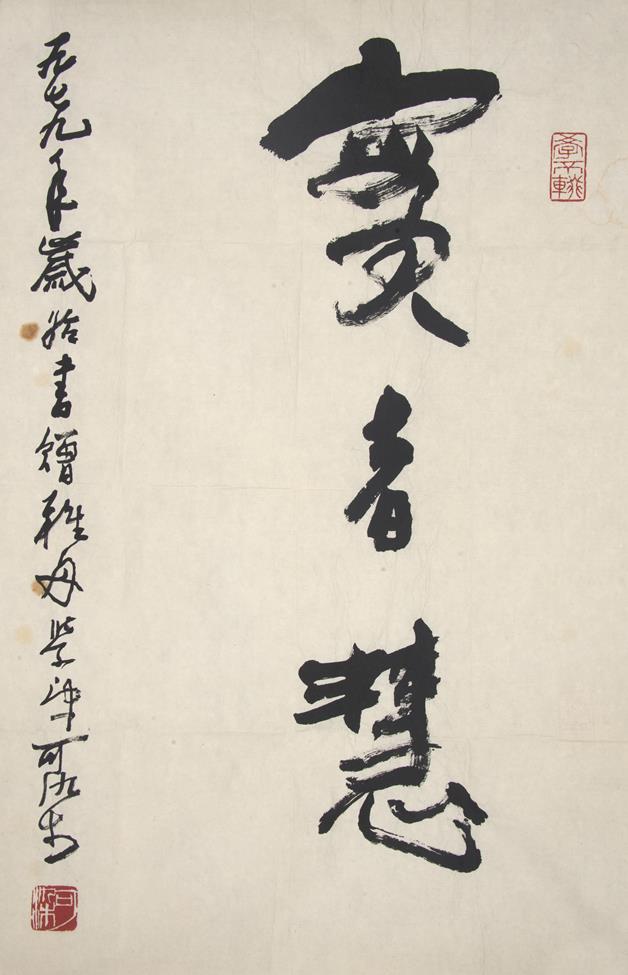 實者慧
一九七九年歲始書贈雅丹學 可染
可染